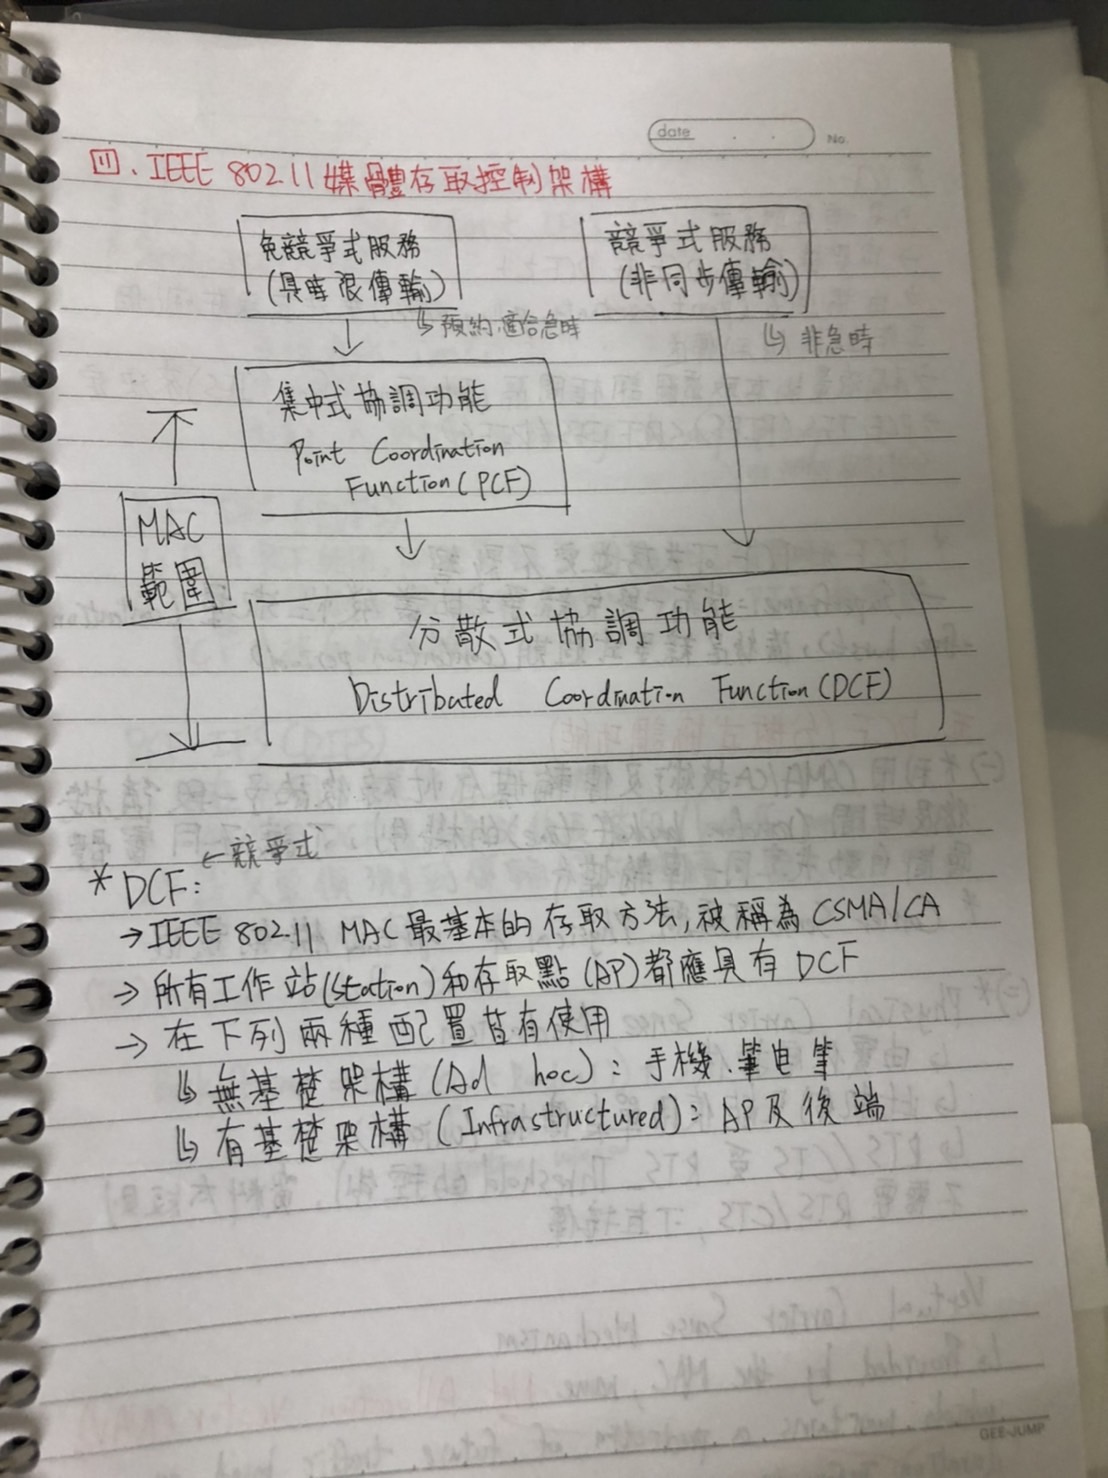 date
No.
四. IEEE 802.11 媒體存取控制架構
免競爭式服務
(具時限傳輸)
↳ 預約.適合急時
競爭式服務
(非同步傳輸)
↳ 非急時
集中式協調功能
Point Coordination
Function (PCF)
MAC
範圍
分散式協調功能
Distributed Coordination Function (DCF)
←競爭式
* DCF:
→ IEEE 802.11 MAC 最基本的存取方法,被稱為 CSMA/CA
→ 所有工作站(Station)和存取點(AP)都應具有 DCF
→ 在下列兩種配置皆有使用
↳ 無基礎架構 (Ad hoc): 手機.筆電等
↳ 有基礎架構 (Infrastructured): AP及後端
GEE-JUMP